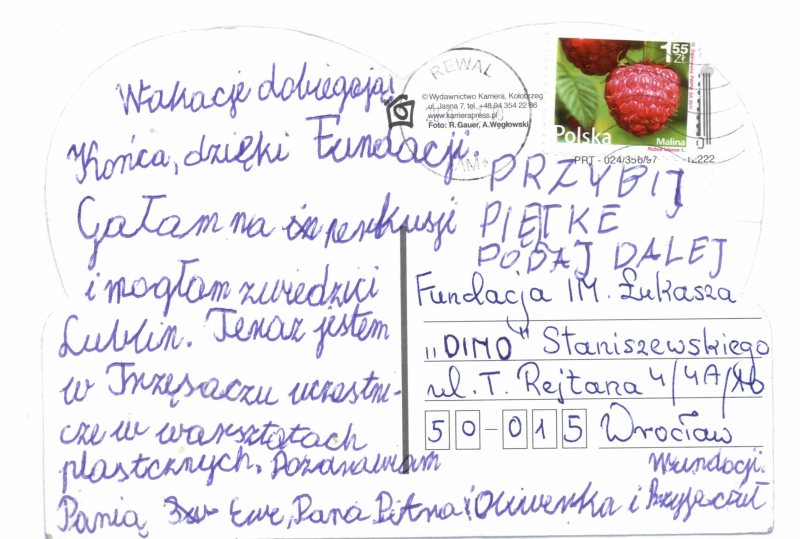 Wakacje dobiegają
Końca, dzięki Fundacji.
Gałam na perkusji
i mogłam zwiedzici
Lublin. Teraz jestem
w Trzęsaczu uczestni-
cze w warsztatach
plastcznych. Pozdrawiam
Panią Ewe, Pana Piotra i Oliwerka i Przyjaciół
Wundacji.
REWAL
© Wydawnictwo Kamera, Kołobrzeg
ul. Jasna 7, tel. +48 94 354 22 86
www.kamerapress.pl
Foto: R.Gauer, A.Węgłowski
1,55
ZŁ
Polska
Malina
Rubus idaeus L.
PRT - 024/356/97
PRZYBIJ
PIĘTKE
PODAJ DALEJ
Fundacja IM. Łukasza
„DIMO" Staniszewskiego
ul. T. Rejtana 4/4A
50-015 Wrocław